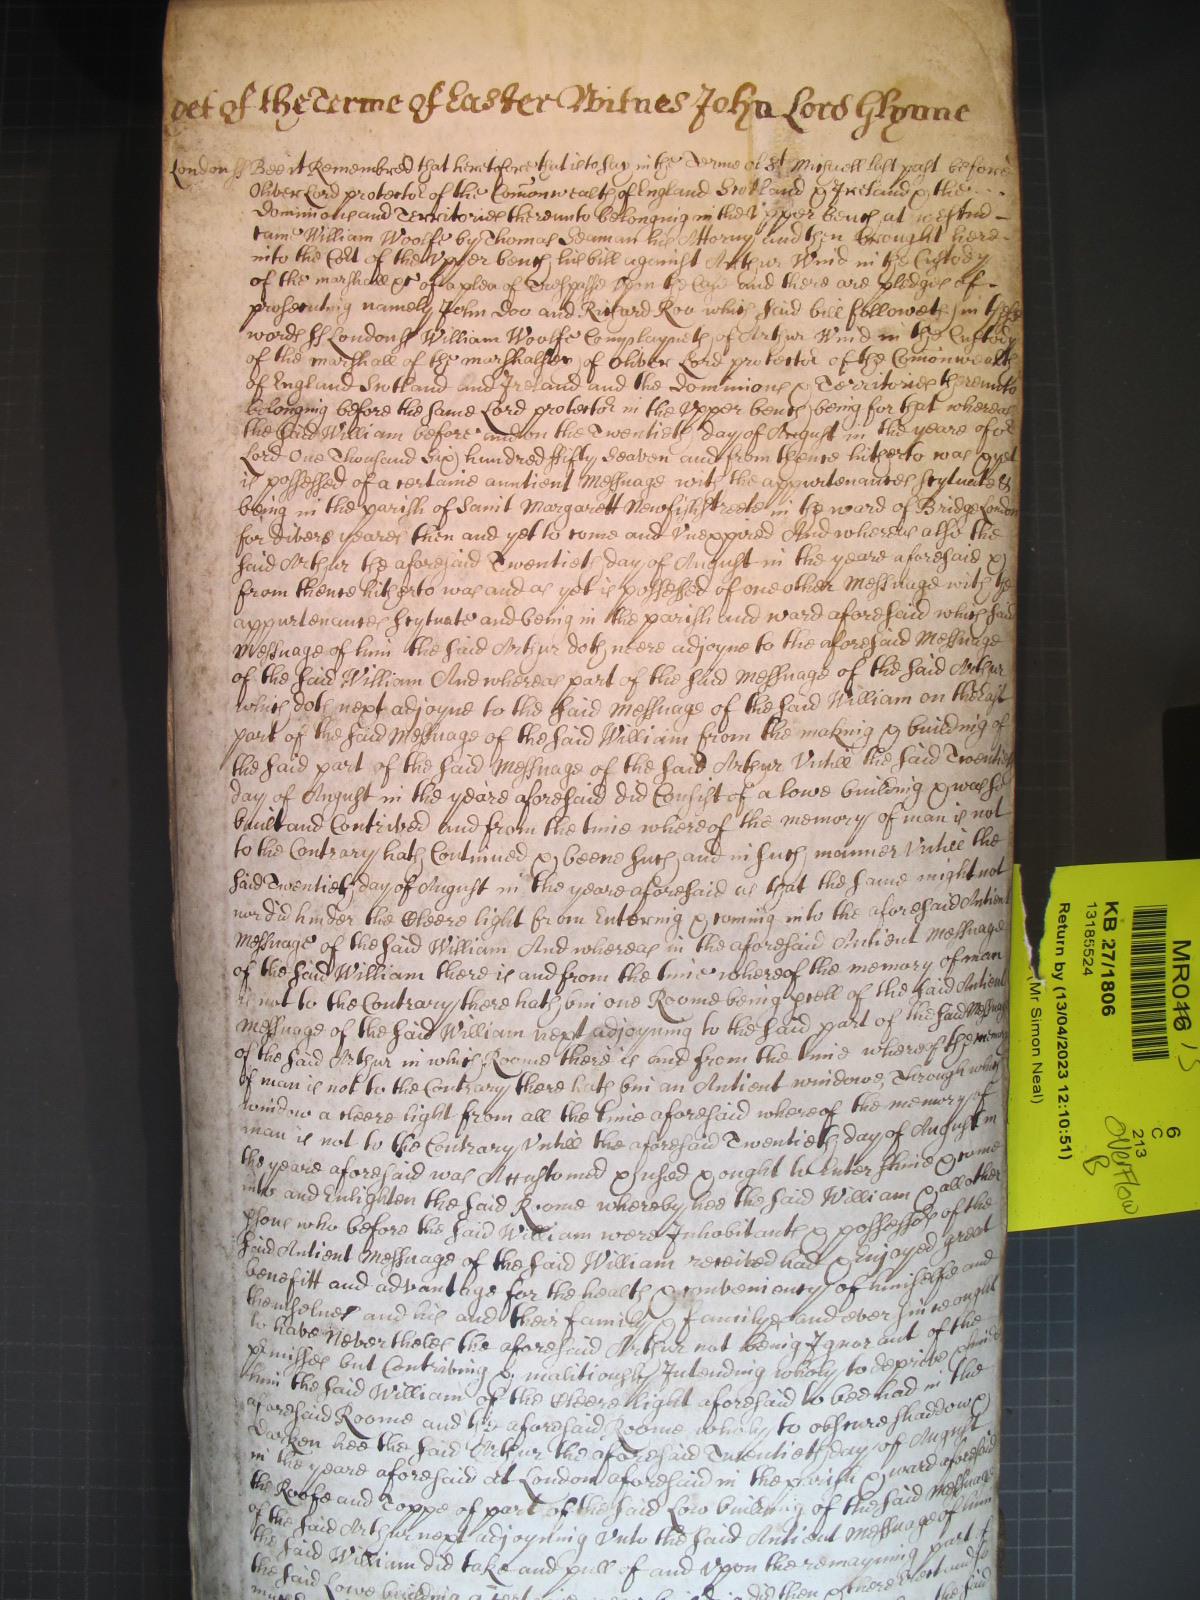 yet of the Terme of Easter Witnes John Lord Glynne
London ss Bee it Remembred that heretofore that is to say in the Terme of St Michaell last past before
Oliver Lord protector of the Comonwealth of England Scotland & Ireland & the
Dominions and Territories thereunto belonging in the Upper bench at westmr
came William Woolfe by Thomas Seaman his Attorny and then brought here
into the Cort of the Upper bench his bill against Arthur Wind in the Custody
of the marshall &c of a plea of Trespasse Upon the Case and there are pledges of
prosecuting namely John Doo and Richard Roo which said bill followeth in these
words ss London ss William Woolfe Complayneth of Arthur Wind in the Custody
of the marshall of the marshalsey of Oliver Lord protector of the Comonwealth
of England Scotland and Ireland and the Dominions & Territories thereunto
belonging before the same Lord protector in the Upper bench being for that whereas
the said William before and on the Twentieth day of August in the yeare of or
Lord One Thousand Six hundred fifty Seaven and from thence hitherto was & yet
is possessed of a certaine auntient Messuage with the appurtenances scytuate &
being in the parish of Saint Margarett Newfishstreete in the ward of Bridge London
for divers yeares then and yet to come and Unexpired And whereas also the
said Arthur the aforesaid Twentieth day of August in the yeare aforesaid &
from thence hitherto was and as yet is possessed of one other Messuage with the
appurtenances scytuate and being in the parish and ward aforesaid which said
Messuage of him the said Arthur doth neere adjoyne to the aforesaid Messuage
of the said William And whereas part of the said Messuage of the said Arthur
which doth next adjoyne to the said Messuage of the said William on the East
part of the said Messuage of the said William from the making & building of
the said part of the said Messuage of the said Arthur Untill the said Twentieth
day of August in the yeare aforesaid did Consist of a lowe building & was so
built and Contrived and from the time whereof the memory of man is not
to the Contrary hath Continued & beene such and in such manner Untill the
said Twentieth day of August in the yeare aforesaid as that the same might not
nor did hinder the Cleere light from Entering & coming into the aforesaid Antient
Messuage of the said William And whereas in the aforesaid Antient Messuage
of the said William there is and from the time whereof the memory of man
is not to the Contrary there hath bin one Roome being prcell of the said Antient
Messuage of the said William next adjoyning to the said part of the said Messuage
of the said Arthur in which Roome there is and from the time whereof the memory
of man is not to the Contrary there hath bin an Antient windowe Through which
window a cleere light from all the time aforesaid whereof the memory of
man is not to the Contrary Untill the aforesaid Twentieth day of August in
the yeare aforesaid was Accustomed & used & ought to Enter shine & come
into and Enlighten the said Roome whereby hee the said William & all other
psons who before the said William were Inhabitants & possessors of the
said Antient Messuage of the said William received had & Enjoyed great
benefitt and advantage for the health & conveniency of himselfe and
themselves and his and their family & familyes and ever since ought
to have Nevertheles the aforesaid Arthur not being Ignorant of the
pmisses but Contriving & malitiously Intending wholy to deprive
him the said William of the Cleere light aforesaid to bee had in the
aforesaid Roome and the aforesaid Roome wholy to obscure shaddow &
Darken hee the said Arthur the aforesaid Twentieth day of August
in the yeare aforesaid at London aforesaid in the parish & ward aforesaid
the Roofe and Toppe of part of the said Low building of the said Messuage
of the said Arthur next adjoyning Unto the said Antient Messuage of him
the said William did take and pull of and Upon the remayning part of
the said Lowe building a did then & there Erect and
the said
MR046
13
KB 27/1806
13185524
Return by (13/04/2023 12:10:51)
Mr Simon Neal)
6
C
213
Overflow
B